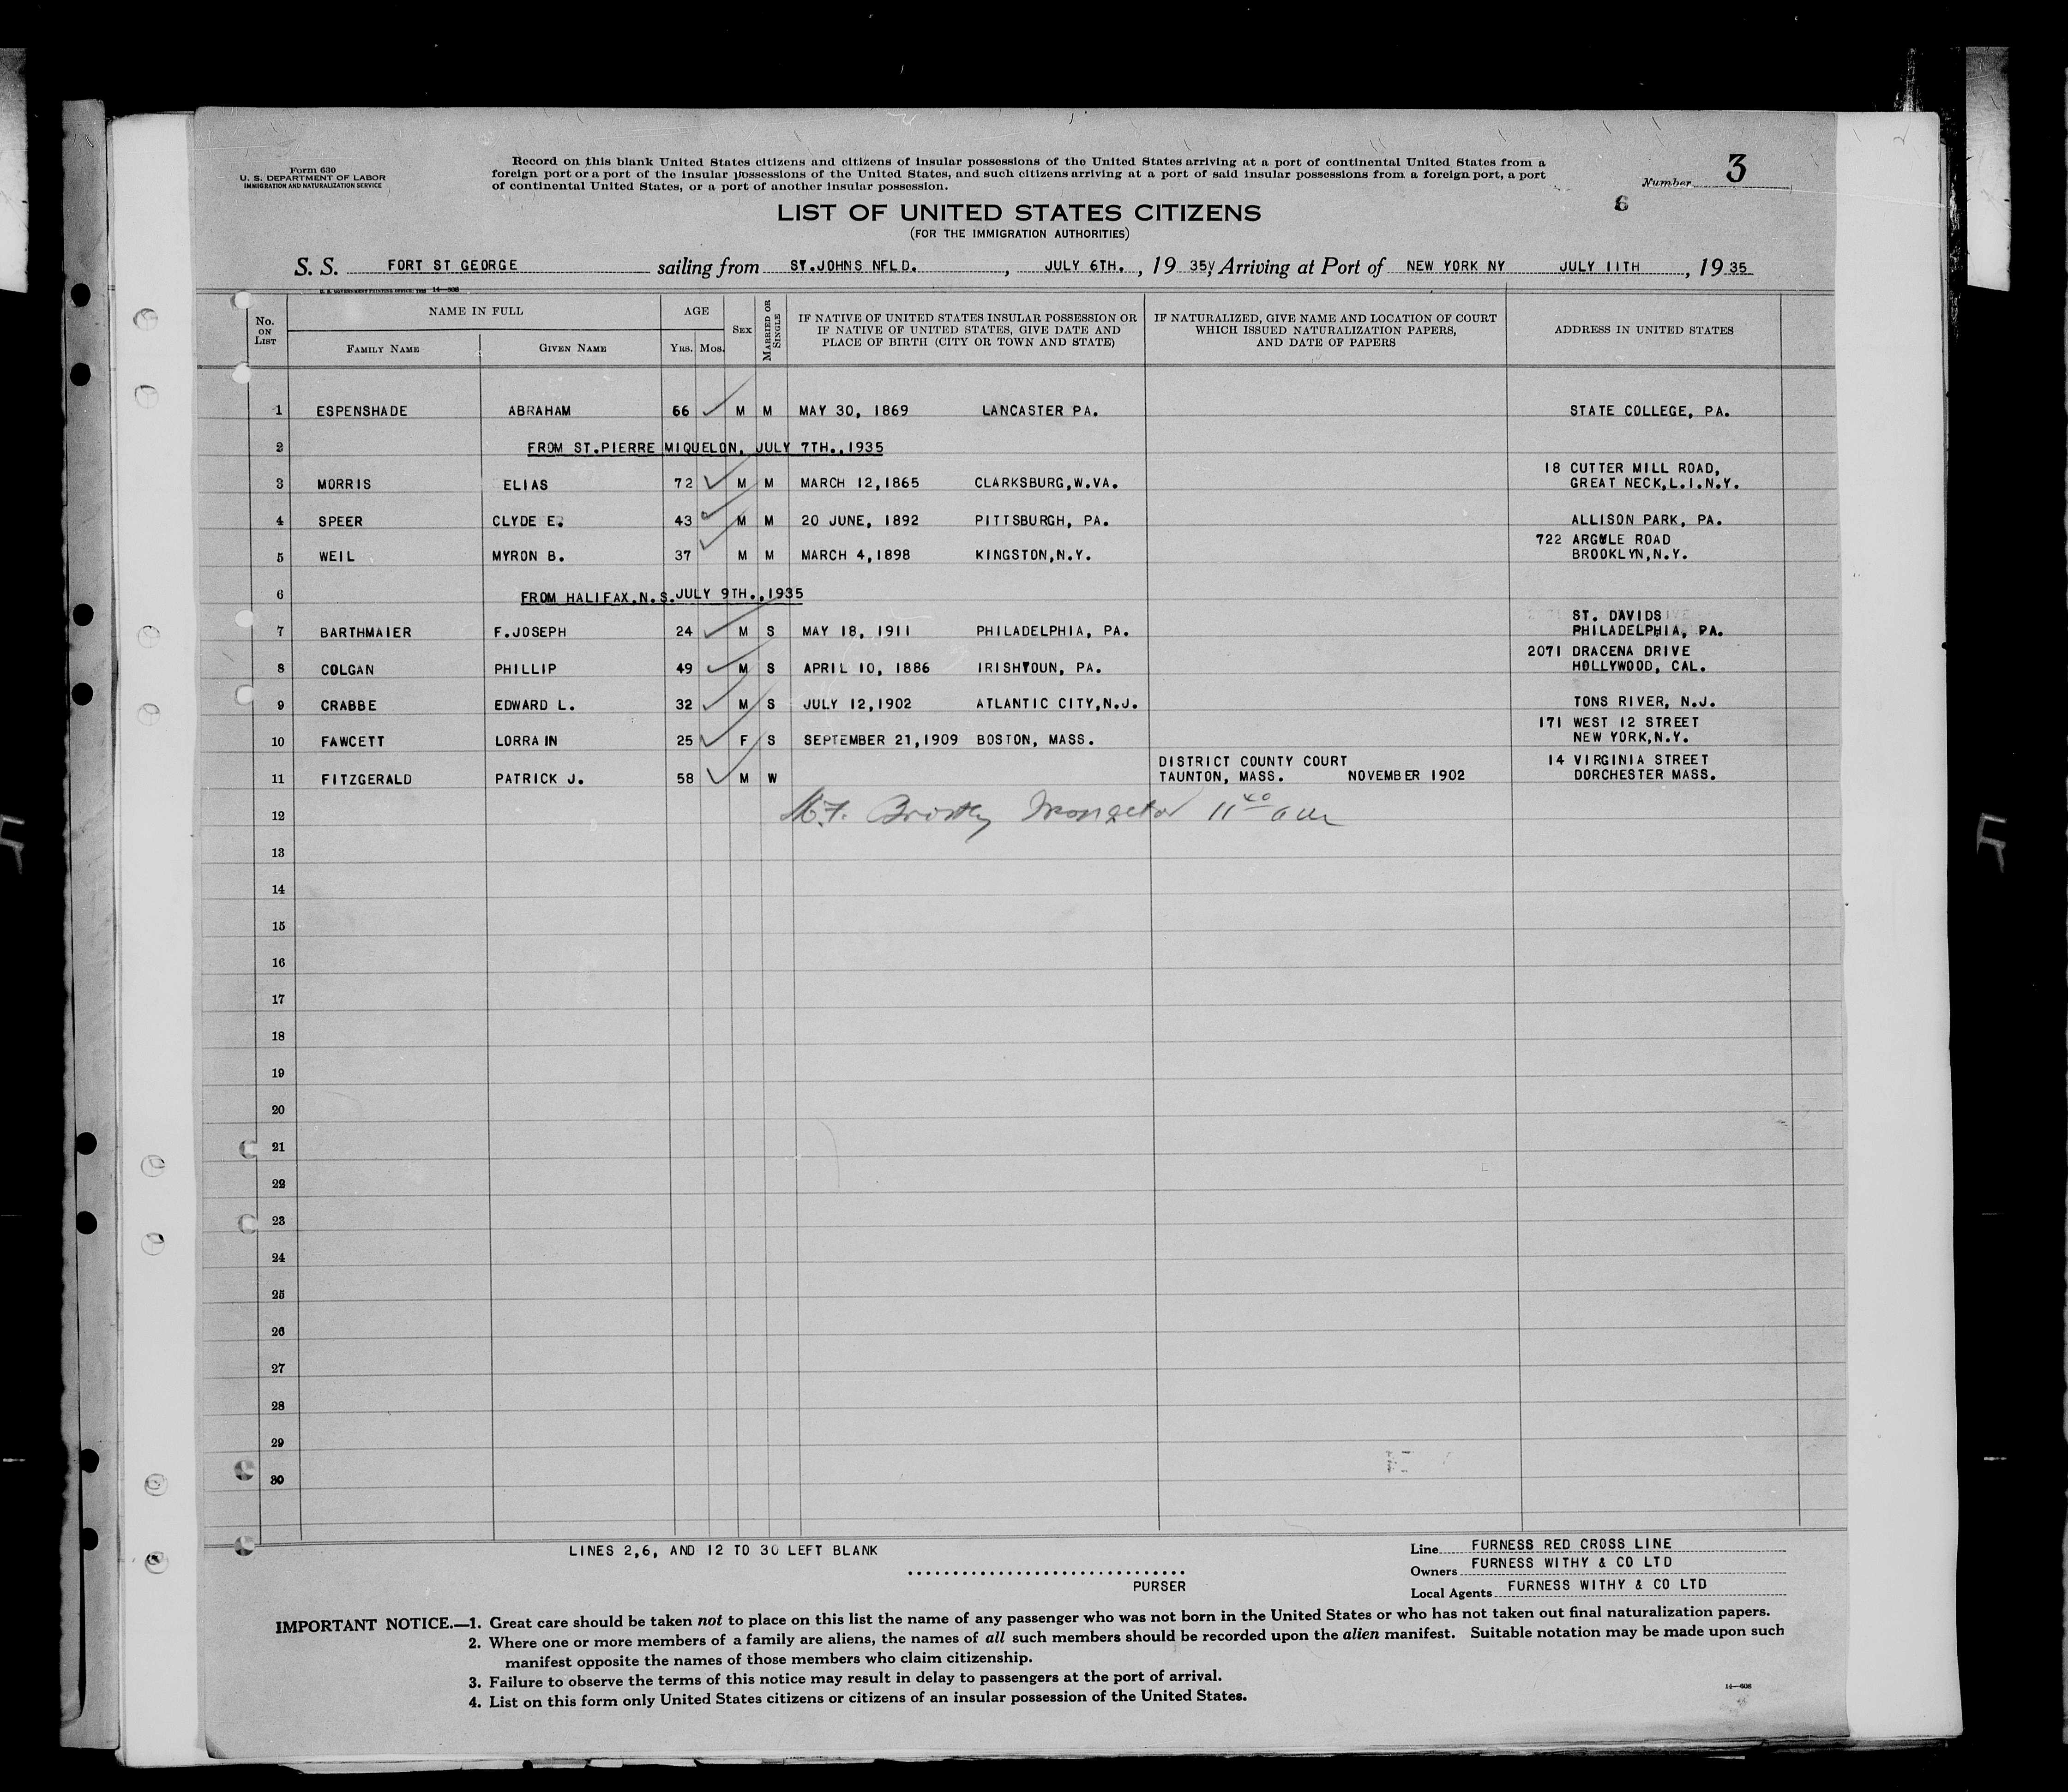 Form 630
U. S. DEPARTMENT OF LABOR
IMMIGRATION AND NATURALIZATION SERVICE
Record on this blank United States citizens and citizens of insular possessions of the United States arriving at a port of continental United States from a
foreign port or a port of the insular possessions of the United States, and such citizens arriving at a port of said insular possessions from a foreign port, a port
of continental United States, or a port of another insular possession.
Number 3
6
LIST OF UNITED STATES CITIZENS
(FOR THE IMMIGRATION AUTHORITIES)
S. S. FORT ST GEORGE sailing from ST.JOHNS NFLD. , JULY 6TH. , 19 35, Arriving at Port of NEW YORK NY JULY 11TH , 19 35
No. ON LIST
NAME IN FULL
FAMILY NAME GIVEN NAME
AGE
YRS. MOS.
SEX
MARRIED OR SINGLE
IF NATIVE OF UNITED STATES INSULAR POSSESSION OR
IF NATIVE OF UNITED STATES, GIVE DATE AND
PLACE OF BIRTH (CITY OR TOWN AND STATE)
IF NATURALIZED, GIVE NAME AND LOCATION OF COURT
WHICH ISSUED NATURALIZATION PAPERS,
AND DATE OF PAPERS
ADDRESS IN UNITED STATES
1 ESPENSHADE ABRAHAM 66 M M MAY 30, 1869 LANCASTER PA. STATE COLLEGE, PA.
2 FROM ST.PIERRE MIQUELON, JULY 7TH.,1935
3 MORRIS ELIAS 72 M M MARCH 12,1865 CLARKSBURG,W.VA. 18 CUTTER MILL ROAD,
GREAT NECK,L.I.N.Y.
4 SPEER CLYDE E. 43 M M 20 JUNE, 1892 PITTSBURGH, PA. ALLISON PARK, PA.
5 WEIL MYRON B. 37 M M MARCH 4,1898 KINGSTON,N.Y. 722 ARGYLE ROAD
BROOKLYN,N.Y.
6 FROM HALIFAX.N.S.JULY 9TH.,1935
7 BARTHMAIER F.JOSEPH 24 M S MAY 18, 1911 PHILADELPHIA, PA. ST. DAVIDS
PHILADELPHIA, PA.
8 COLGAN PHILLIP 49 M S APRIL 10, 1886 IRISHTOUN, PA. 2071 DRACENA DRIVE
HOLLYWOOD, CAL.
9 CRABBE EDWARD L. 32 M S JULY 12,1902 ATLANTIC CITY,N.J. TONS RIVER, N.J.
10 FAWCETT LORRAIN 25 F S SEPTEMBER 21,1909 BOSTON, MASS. 171 WEST 12 STREET
NEW YORK,N.Y.
11 FITZGERALD PATRICK J. 58 M W DISTRICT COUNTY COURT
TAUNTON, MASS. NOVEMBER 1902 14 VIRGINIA STREET
DORCHESTER MASS.
12 11 40 am
13
14
15
16
17
18
19
20
21
22
23
24
25
26
27
28
29
30
LINES 2,6, AND 12 TO 30 LEFT BLANK
PURSER
Line FURNESS RED CROSS LINE
Owners FURNESS WITHY & CO LTD
Local Agents FURNESS WITHY & CO LTD
IMPORTANT NOTICE.—1. Great care should be taken not to place on this list the name of any passenger who was not born in the United States or who has not taken out final naturalization papers.
2. Where one or more members of a family are aliens, the names of all such members should be recorded upon the alien manifest. Suitable notation may be made upon such
manifest opposite the names of those members who claim citizenship.
3. Failure to observe the terms of this notice may result in delay to passengers at the port of arrival.
4. List on this form only United States citizens or citizens of an insular possession of the United States.
14—608